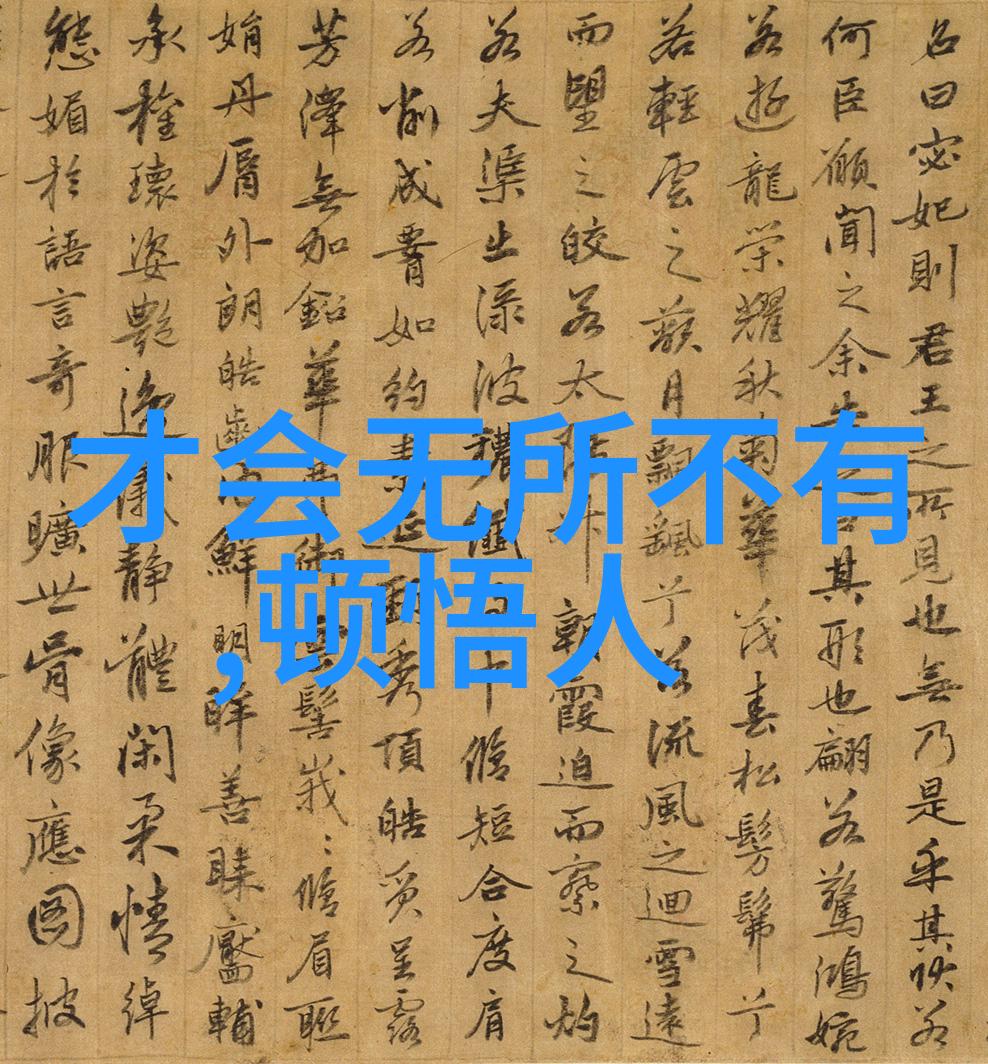 名曰宓妃則君王之所見也無乃是乎其狀若
何臣願聞之余
其形也翩若驚鴻婉
若遊龍榮耀秋菊華茂春松髣髴兮
若輕雲之蔽月飄颻兮若流風之迴雪遠
而望之皎若太
朝霞迫而察之灼
若夫渠出淥波穠纖
脩短合度肩
若削成
如約素延
秀項皓質呈露
芳澤無加鉛華
御
髻峩〻脩眉聯
娟丹脣外朗皓齒內鮮明眸善睞靨輔
承權瓌姿艷逸儀靜體閑柔情綽
態媚於語言奇服曠世骨像應圖披
才会无所不有
,顿悟人